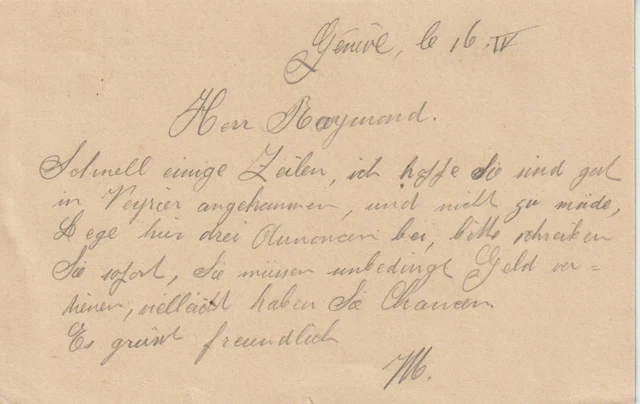 Génève, le 16. IV
Herr Raymond.
Schnell einige Zeilen, ich hoffe Sie sind gut
in Veyrier angekommen, und nicht zu müde,
Lege hier drei Annoncen bei, bitte schreiben
Sie sofort, Sie müssen unbedingt Geld ver=
dienen, vielleicht haben Sie Chancen.
Es grüsst freundlich
M.